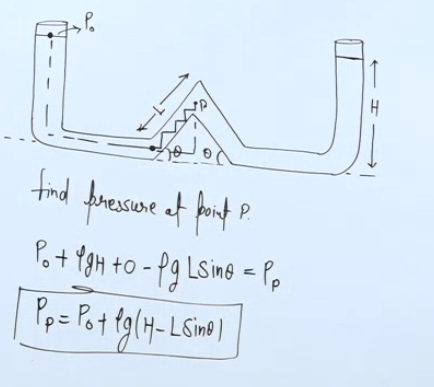 P₀
L
P
H
θ
θ
find pressure at point P.
P₀ + ρgH + 0 - ρg L sinθ = Pₚ
Pₚ = P₀ + ρg(H - L sinθ)